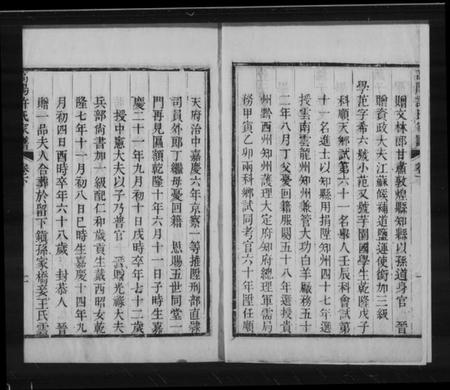 贈文林郎甘肅敦煌縣知縣以孫道身官　晉
贈資政大夫江蘇候補道鹽運使銜加三級
學范字希六號小范又號芋園國學生乾隆戊子
科順天鄉試第六十一名舉人壬辰科會試第
十一名進士以知縣用捐陞知州四十七年選
授雲南雲龍州知州兼管大功白羊廠務五十
二年八月丁父憂回籍服闋五十八年選授貴
州黔西州知州護理大定府知府總理軍需局
務甲寅乙卯兩科鄉試同考官六十年陞任順
天府治中嘉慶六年京察一等推陞刑部直隸
司員外郎丁繼母憂回籍　恩賜五世同堂一
門再見區額乾隆十六年六月十一日子時生嘉
慶二十一年九月初十日戌時卒年七十二歲
授中憲大夫以子乃普官　晉贈光祿大夫
兵部尚書加一級配仁和歲貢生戴西昭女乾
隆七年十一月初八日巳時生嘉慶十四年九
月初四日酉時卒年六十八歲　封恭人　晉
贈一品夫人合葬於留下鎮孫家橋妾王氏雲
高陽許氏家譜　卷下